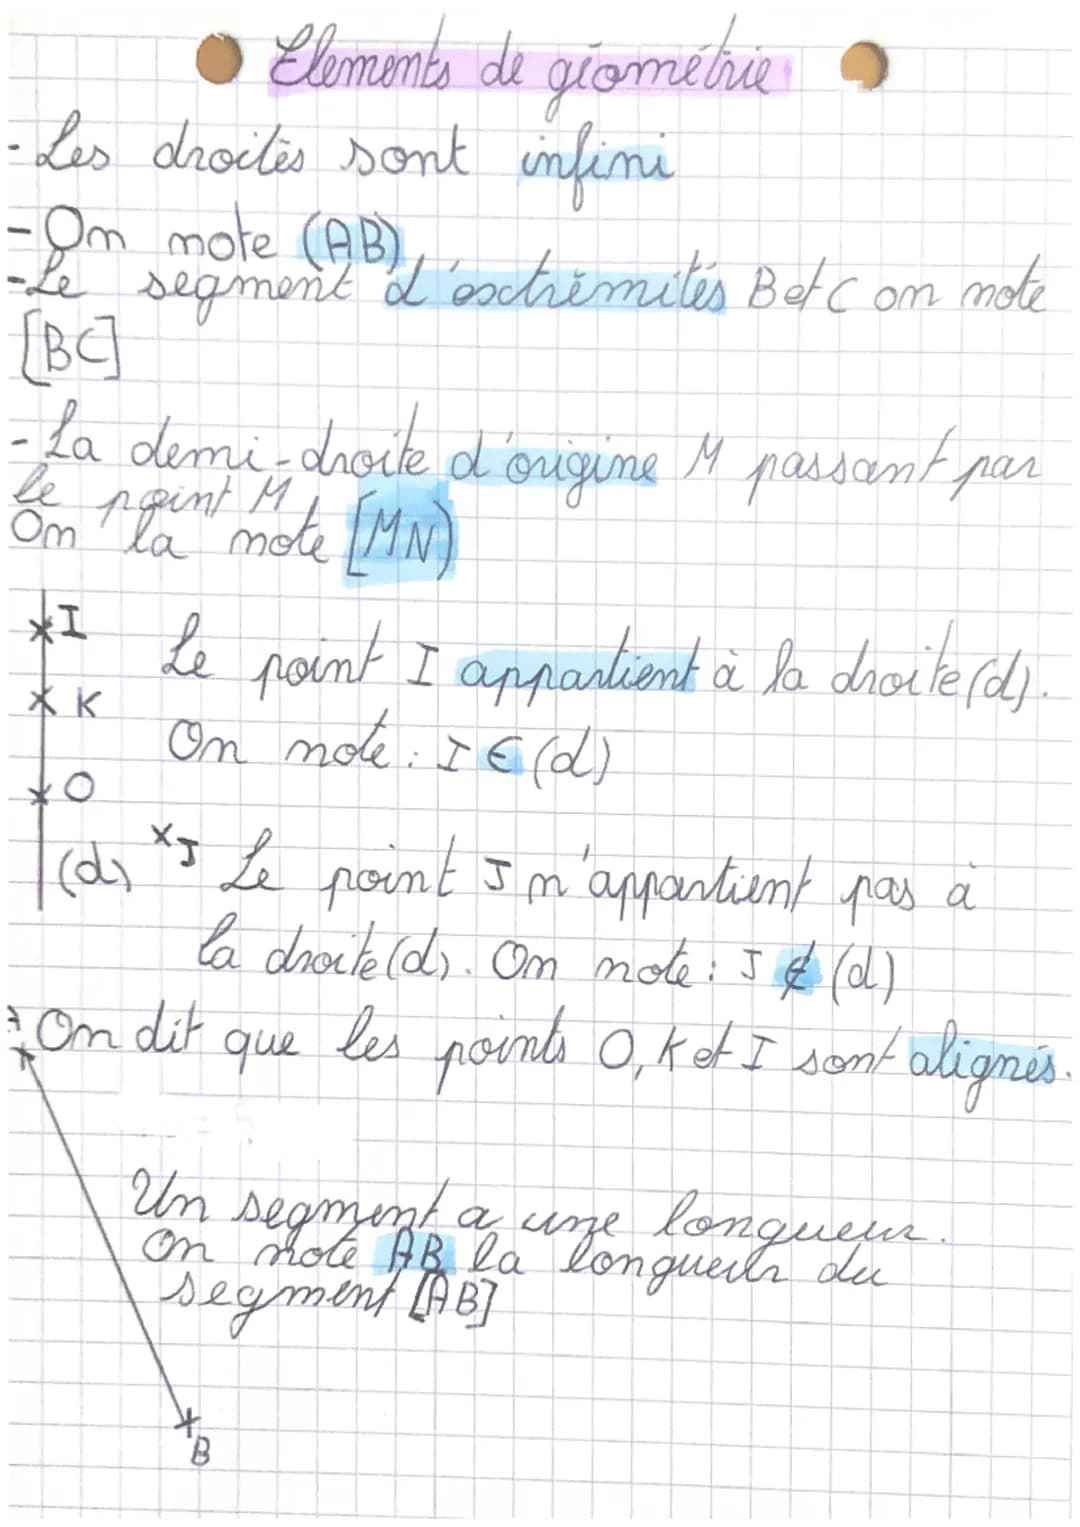 Elements de géométrie
- Les droites sont infini
- On note (AB)
- Le segment d'extrémités B et C on note
[BC]
- La demi-droite d'origine M passant par
le point M
On la note [MN)
I
Le point I appartient à la droite (d).
K
On note : I ∈ (d)
O
(d)
J
Le point J n'appartient pas à
la droite (d). On note : J ∉ (d)
On dit que les points O, K et I sont alignés.
Un segment a une longueur.
On note AB la longueur du
segment [AB]
B